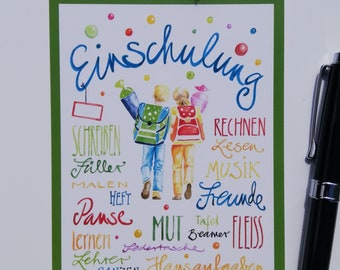 Einschulung
SCHREIBEN
RECHNEN
Füller
Lesen
MALEN
MUSIK
HEFT
Freunde
Pause
MUT
Tafel
Beamer
FLEISS
lernen
Federtasche
Lehrer
RANZEN
Hausaufgaben